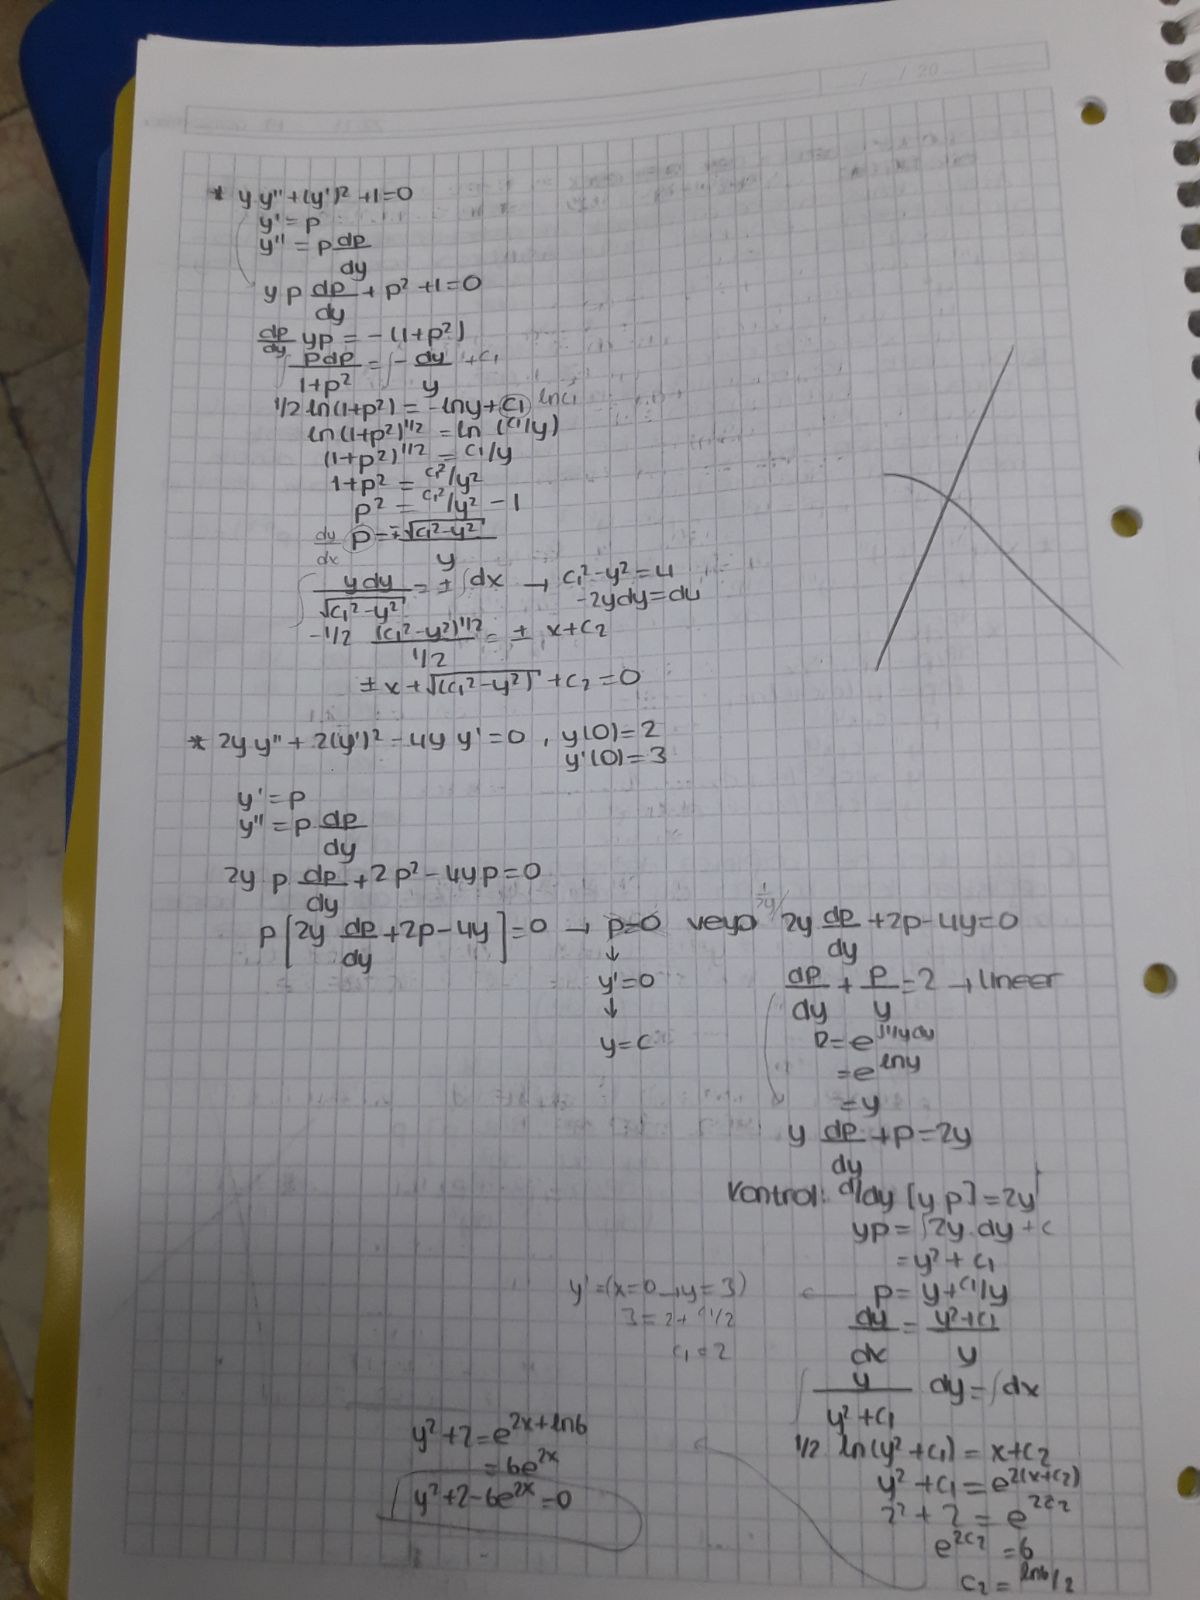 / / 20
* y.y'' + (y')² + 1 = 0
y' = p
y'' = p dp/dy
y p dp/dy + p² + 1 = 0
dp/dy yp = -(1+p²)
∫ pdp/1+p² = ∫ - dy/y + c₁
1/2 ln(1+p²) = -lny + c₁ lnc₁
ln(1+p²)^1/2 = ln (c₁/y)
(1+p²)^1/2 = c₁/y
1+p² = c₁²/y²
p² = c₁²/y² - 1
dy/dx p = ±√c₁²-y²/y
∫ ydy/√c₁²-y² = ± ∫dx → c₁²-y² = u
-2ydy = du
-1/2 (c₁²-y²)^1/2/1/2 = ± x + c₂
± x + √(c₁²-y²) + c₂ = 0
* 2y y'' + 2(y')² - 4y y' = 0 , y(0) = 2
y'(0) = 3
y' = p
y'' = p dp/dy
2y p dp/dy + 2p² - 4yp = 0
p [2y dp/dy + 2p - 4y] = 0 → p=0 veya 1/2y / 2y dp/dy + 2p - 4y = 0
↓
y' = 0
↓
y = c
dp/dy + p/y = 2 → lineer
p = e^∫1/y dy
= e^lny
= y
y dp/dy + p = 2y
Kontrol: d/dy [y p] = 2y
yp = ∫2y.dy + c
= y² + c₁
p = y + c₁/y
y' = (x=0 → y=3)
3 = 2 + c₁/2
c₁ = 2
dy/dx = y²+c₁/y
∫ y/y²+c₁ dy = ∫dx
1/2 ln(y²+c₁) = x + c₂
y² + c₁ = e^2(x+c₂)
2² + 2 = e^2c₂
e^2c₂ = 6
c₂ = ln6/2
y² + 2 = e^2x+ln6
= 6e^2x
y² + 2 - 6e^2x = 0